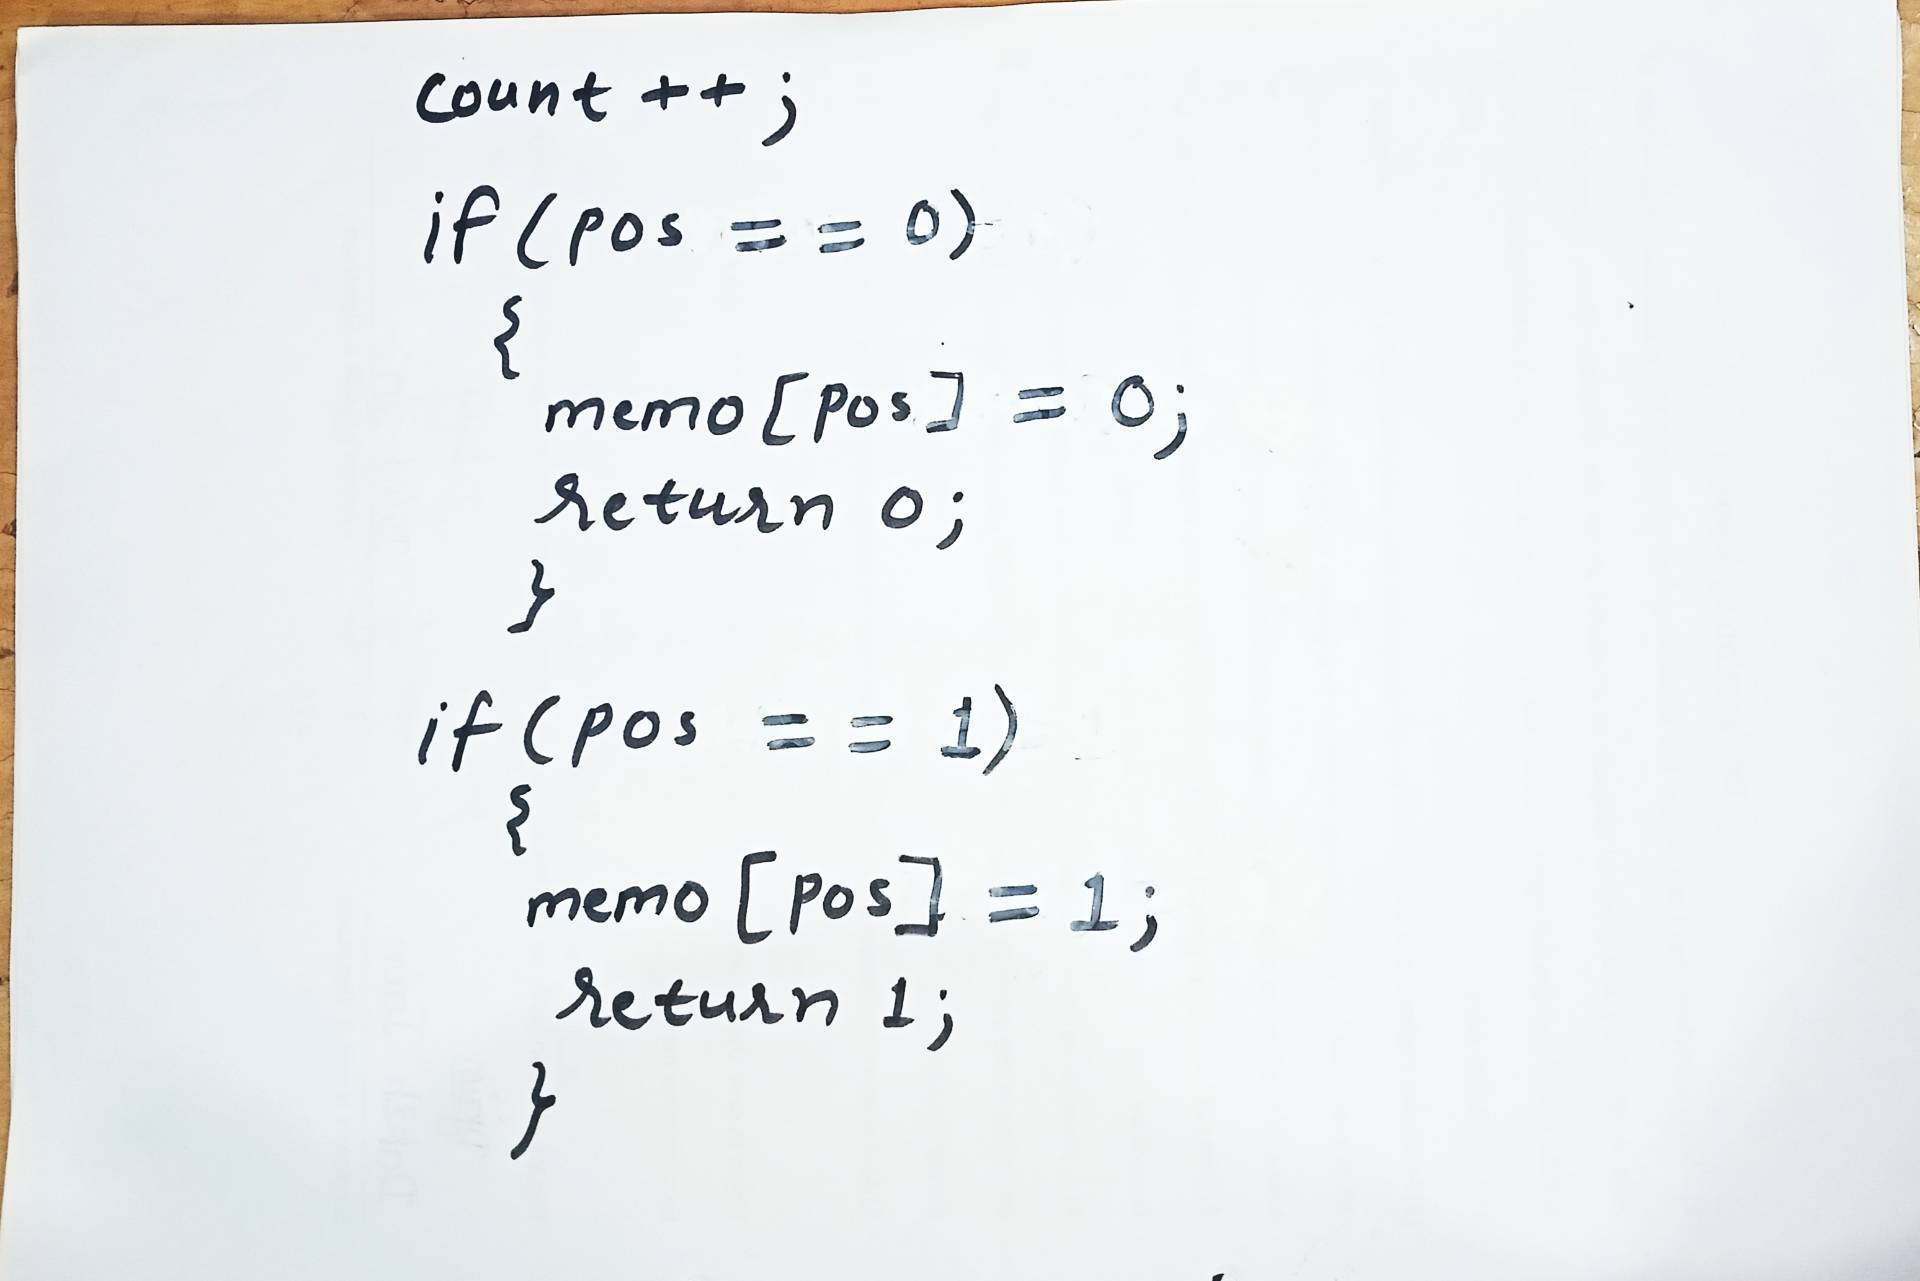 count ++;
if (pos == 0)
{
memo [pos] = 0;
return 0;
}
if (pos == 1)
{
memo [pos] = 1;
return 1;
}